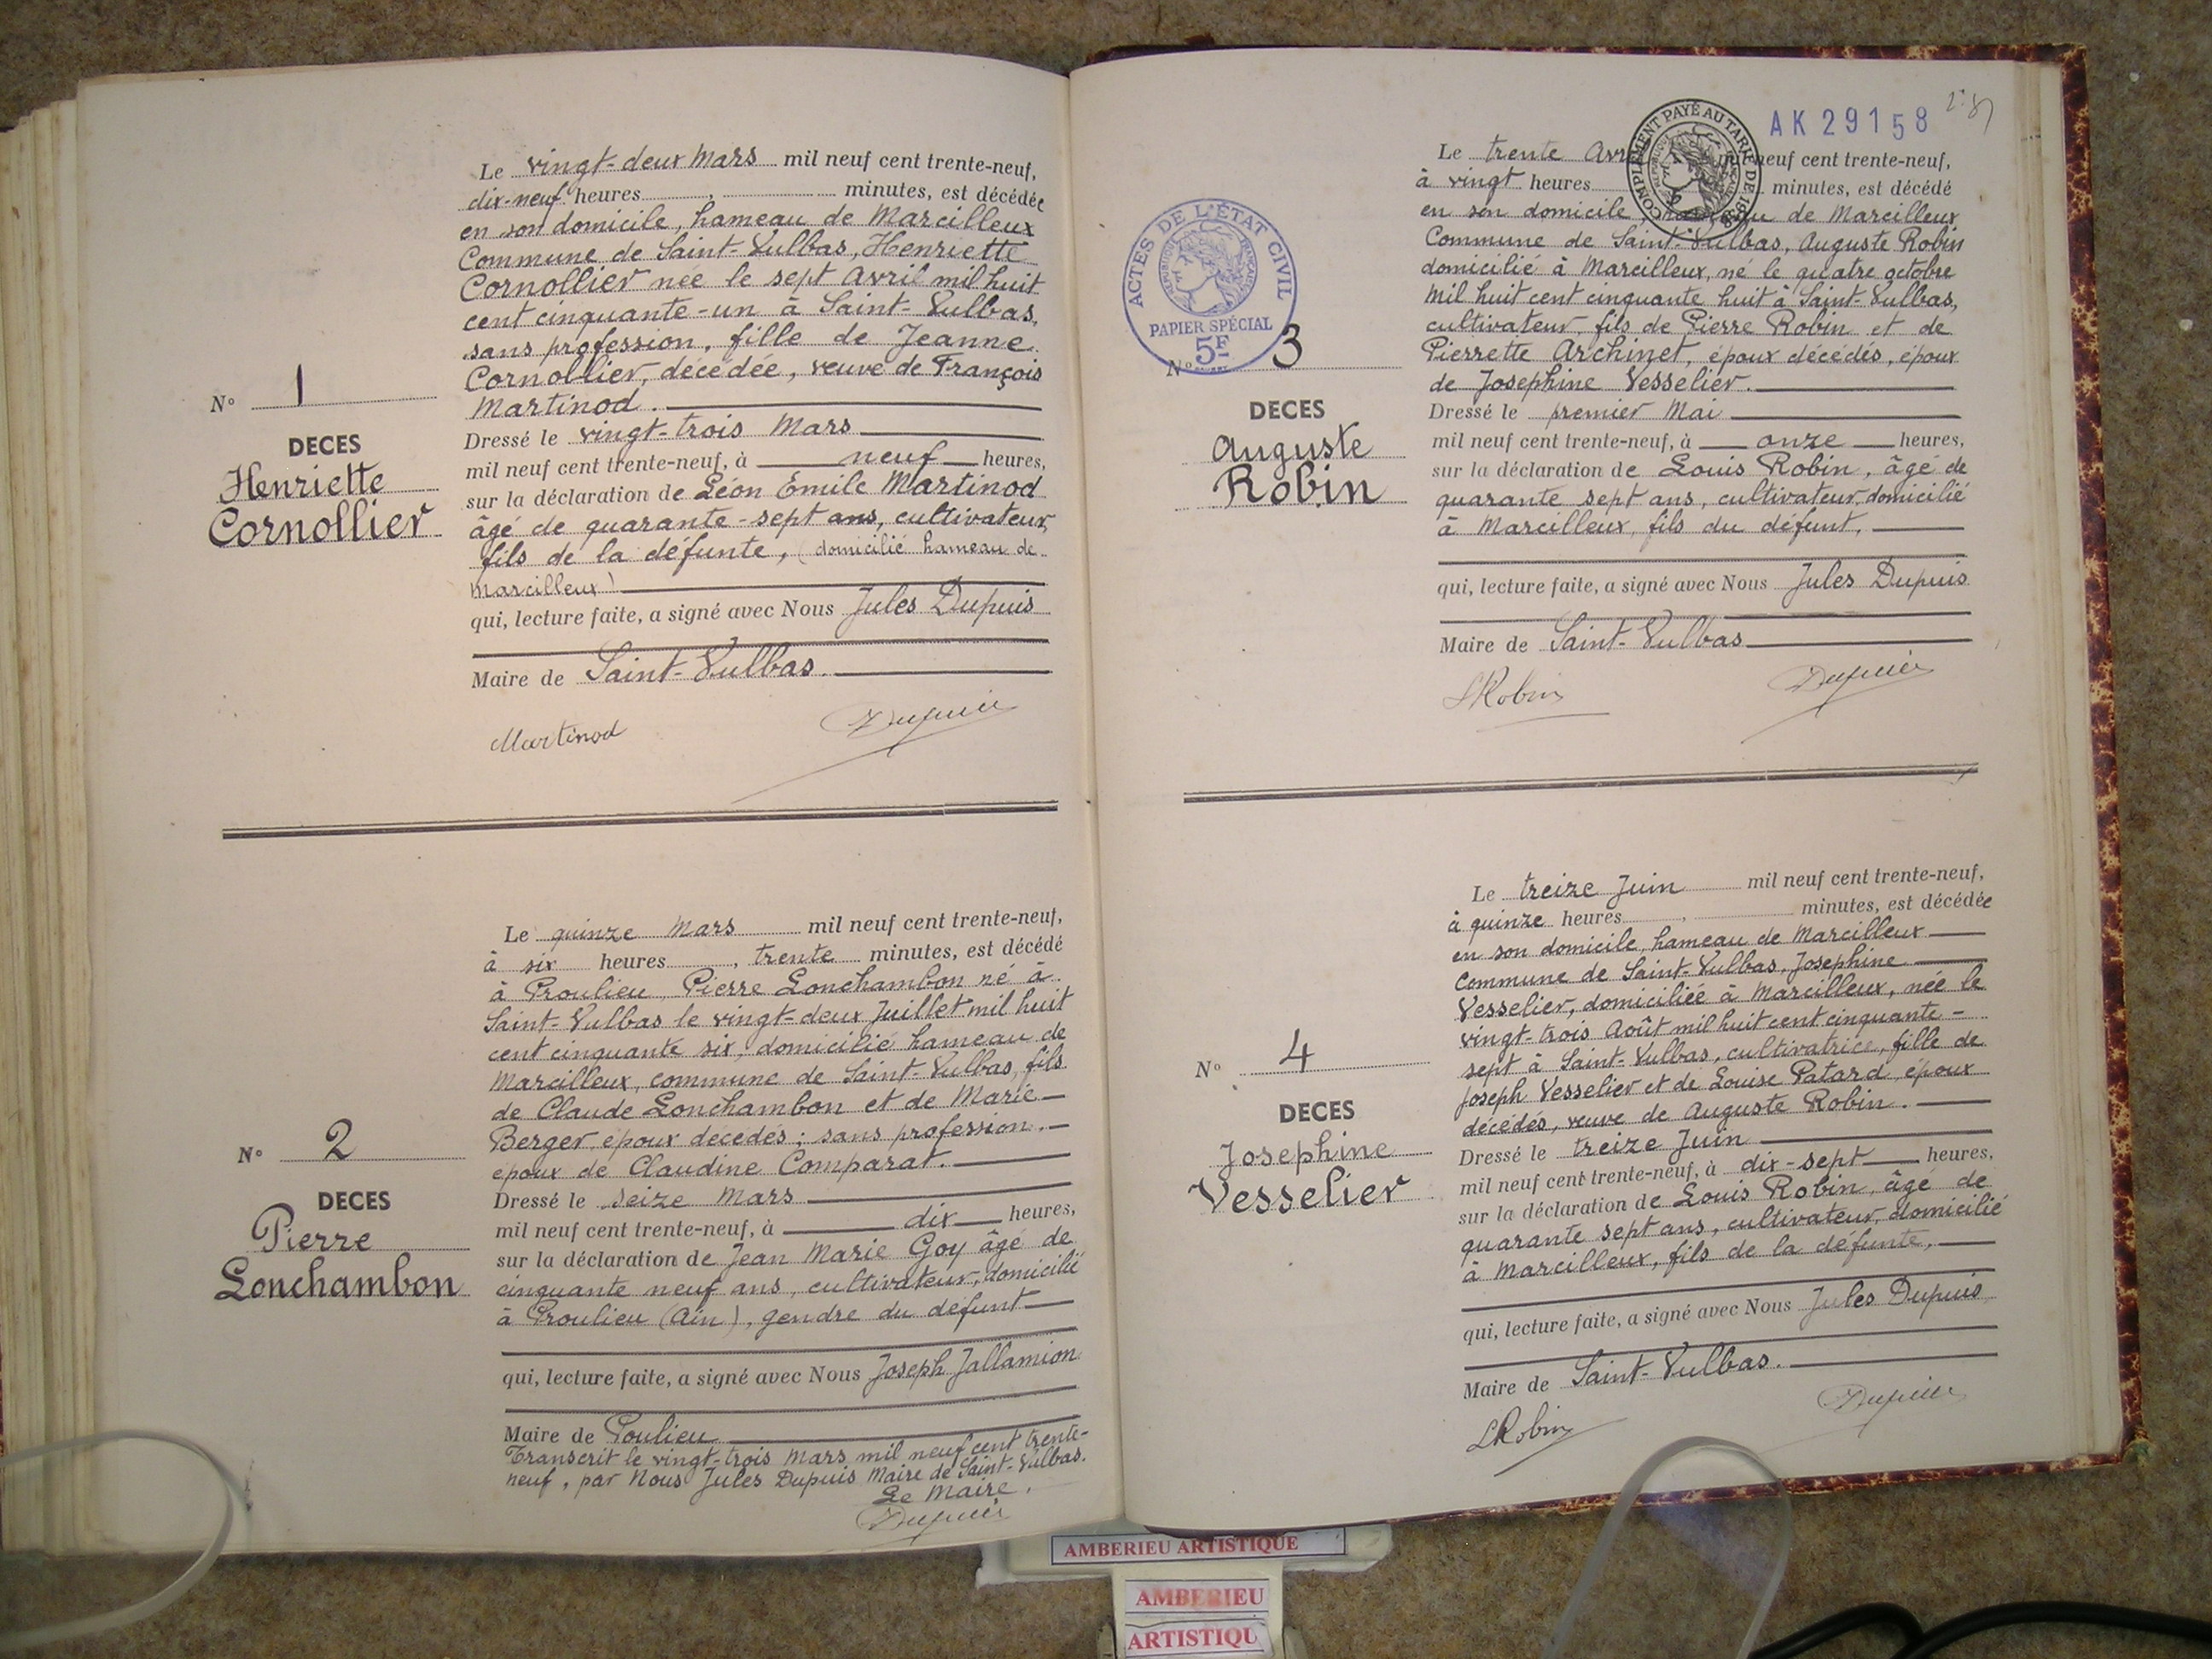 Le vingt-deux Mars mil neuf cent trente-neuf,
dix-neuf heures, minutes, est décédée
en son domicile, hameau de Marcilleux
Commune de Saint-Vulbas, Henriette
Cornollier née le sept Avril mil huit
cent cinquante-un à Saint-Vulbas,
sans profession, fille de Jeanne
Cornollier, décédée, veuve de François
Martinod.
Dressé le vingt-trois Mars
mil neuf cent trente-neuf, à neuf heures,
sur la déclaration de Léon Emile Martinod
âgé de quarante-sept ans, cultivateur,
fils de la défunte, (domicilié hameau de
Marcilleux)
qui, lecture faite, a signé avec Nous Jules Dupuis
Maire de Saint-Vulbas.
Martinod Dupuis
N° 1
DECES
Henriette
Cornollier
Le quinze Mars mil neuf cent trente-neuf,
à six heures, trente minutes, est décédé
à Proulieu, Pierre Lonchambon né à
Saint-Vulbas le vingt-deux Juillet mil huit
cent cinquante six, domicilié hameau de
Marcilleux, commune de Saint-Vulbas, fils
de Claude Lonchambon et de Marie
Berger époux décédés; sans profession,
époux de Claudine Comparat.
Dressé le seize Mars
mil neuf cent trente-neuf, à dix heures,
sur la déclaration de Jean Marie Goy âgé de
cinquante neuf ans, cultivateur, domicilié
à Proulieu (Ain), gendre du défunt
qui, lecture faite, a signé avec Nous Joseph Jallamion
Maire de Poulieu
Transcrit le vingt-trois Mars mil neuf cent trente-
neuf, par Nous Jules Dupuis Maire de Saint-Vulbas.
Le Maire,
Dupuis
N° 2
DECES
Pierre
Lonchambon
AK 29158
COMPLÉMENT PAYÉ AU TARIF DE
Le trente Avr neuf cent trente-neuf,
à vingt heures minutes, est décédé
en son domicile de Marcilleux
Commune de Saint-Vulbas, Auguste Robin
domicilié à Marcilleux, né le quatre octobre
mil huit cent cinquante huit à Saint-Vulbas,
cultivateur, fils de Pierre Robin et de
Pierrette Archinet, époux décédés, époux
de Josephine Vesselier.
Dressé le premier Mai
mil neuf cent trente-neuf, à onze heures,
sur la déclaration de Louis Robin, âgé de
quarante sept ans, cultivateur, domicilié
à Marcilleux, fils du défunt,
qui, lecture faite, a signé avec Nous Jules Dupuis
Maire de Saint-Vulbas
LRobin Dupuis
ACTES DE L'ÉTAT CIVIL
RÉPUBLIQUE FRANÇAISE
PAPIER SPÉCIAL
5F
N° 3
DECES
Auguste
Robin
Le treize Juin mil neuf cent trente-neuf,
à quinze heures, minutes, est décédée
en son domicile, hameau de Marcilleux
Commune de Saint-Vulbas, Josephine
Vesselier, domiciliée à Marcilleux, née le
vingt-trois Août mil huit cent cinquante-
sept à Saint-Vulbas, cultivatrice, fille de
Joseph Vesselier et de Louise Patard, époux
décédés, veuve de Auguste Robin.
Dressé le treize Juin
mil neuf cent trente-neuf, à dix-sept heures,
sur la déclaration de Louis Robin, âgé de
quarante sept ans, cultivateur, domicilié
à Marcilleux, fils de la défunte,
qui, lecture faite, a signé avec Nous Jules Dupuis
Maire de Saint-Vulbas.
LRobin Dupuis
N° 4
DECES
Josephine
Vesselier
AMBERIEU ARTISTIQUE
AMBERIEU
ARTISTIQU